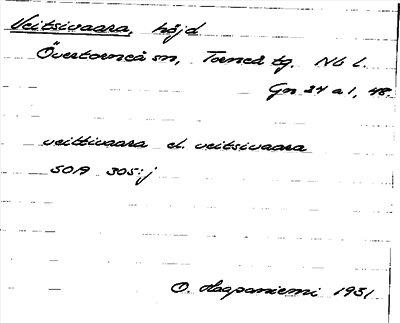 Veitsivaara, höjd
Övertorneå sn, Torneå tg. Nb l.
Gen 34 a 1, 48.
veittivaara el. veitsivaara
SOA 305:j
O. Haapaniemi 1931